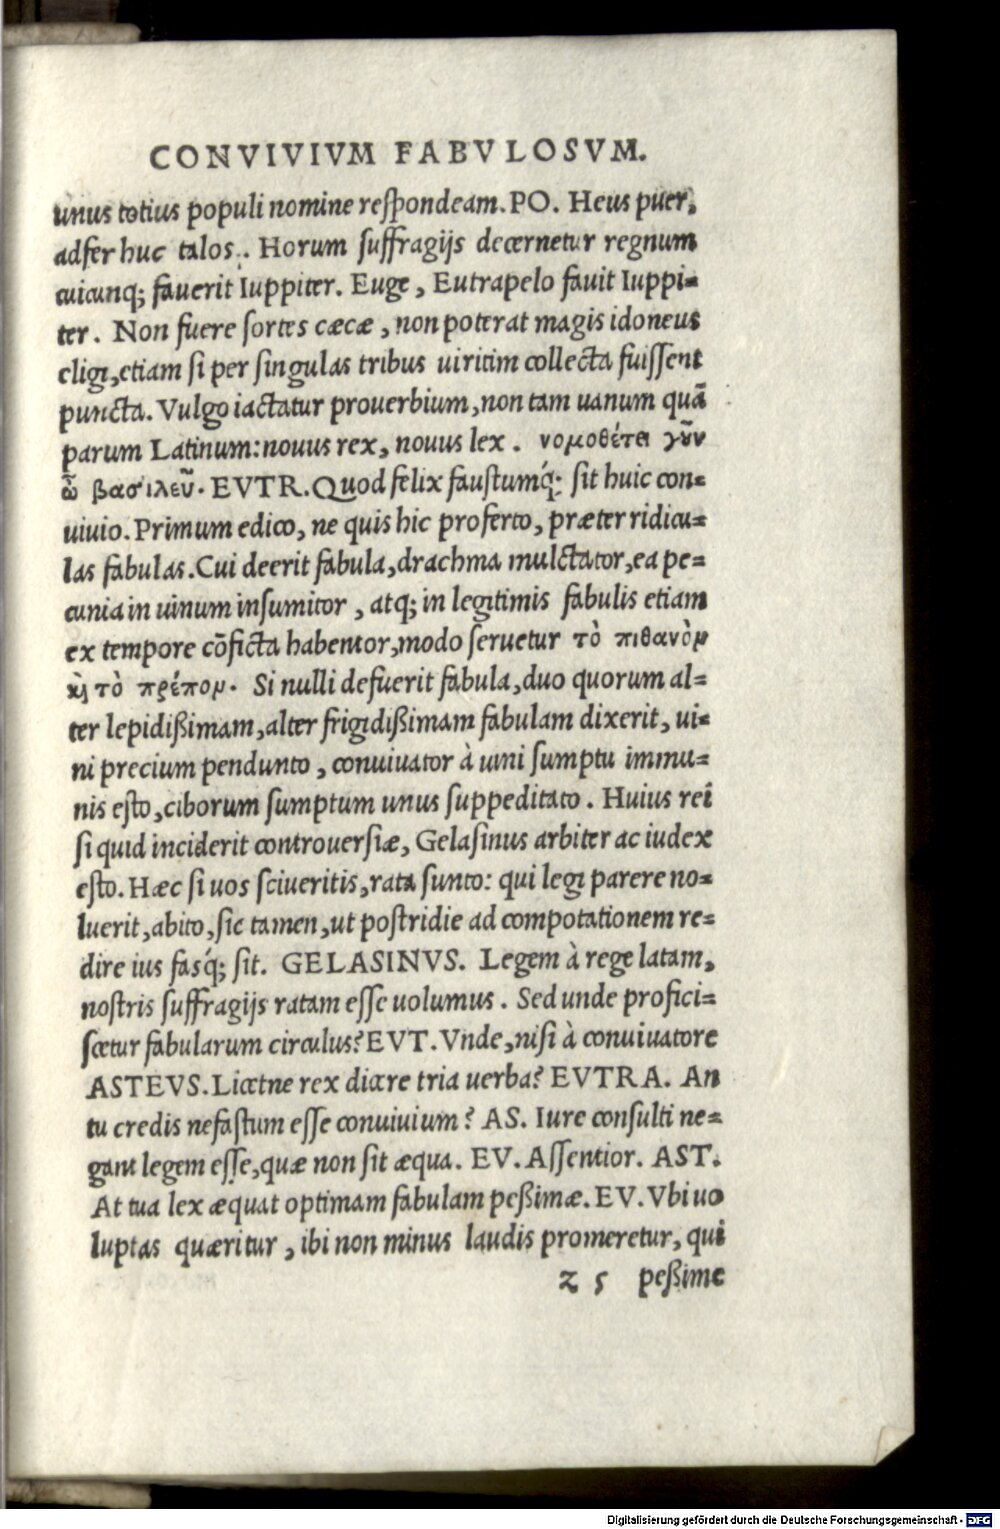 CONVIVIVM FABVLOSVM.
unus totius populi nomine respondeam. PO. Heus puer,
adfer huc talos. Horum suffragijs decernetur regnum
cuicunq; fauerit Iuppiter. Euge, Eutrapelo fauit Iuppi=
ter. Non fuere sortes cæcæ, non poterat magis idoneus
eligi, etiam si per singulas tribus uiritim collecta fuissent
puncta. Vulgo iactatur prouerbium, non tam uanum quã
parum Latinum: nouus rex, nouus lex. νομοθέτει γοῦν
ὦ βασιλεῦ. EVTR. Quod felix faustumq́; sit huic con=
uiuio. Primum edico, ne quis hic proferto, præter ridicu=
las fabulas. Cui deerit fabula, drachma mulctator, ea pe=
cunia in uinum insumitor, atq; in legitimis fabulis etiam
ex tempore cõficta habentor, modo seruetur τὸ πιθανὸν
κὶ τὸ πρέπον. Si nulli defuerit fabula, duo quorum al=
ter lepidißimam, alter frigidißimam fabulam dixerit, ui=
ni precium pendunto, conuiuator à uini sumptu immu=
nis esto, ciborum sumptum unus suppeditato. Huius rei
si quid inciderit controuersiæ, Gelasinus arbiter ac iudex
esto. Hæc si uos sciueritis, rata sunto: qui legi parere no=
luerit, abito, sic tamen, ut postridie ad compotationem re=
dire ius fasq́; sit. GELASINVS. Legem à rege latam,
nostris suffragijs ratam esse uolumus. Sed unde profici=
scetur fabularum circulus? EVT. Vnde, nisi à conuiuatore
ASTEVS. Licetne rex dicere tria uerba? EVTRA. An
tu credis nefastum esse conuiuium? AS. Iure consulti ne=
gant legem esse, quæ non sit æqua. EV. Assentior. AST.
At tua lex æquat optimam fabulam peßimæ. EV. Vbi uo
luptas quæritur, ibi non minus laudis promeretur, qui
z 5 peßime
Digitalisierung gefördert durch die Deutsche Forschungsgemeinschaft - DFG